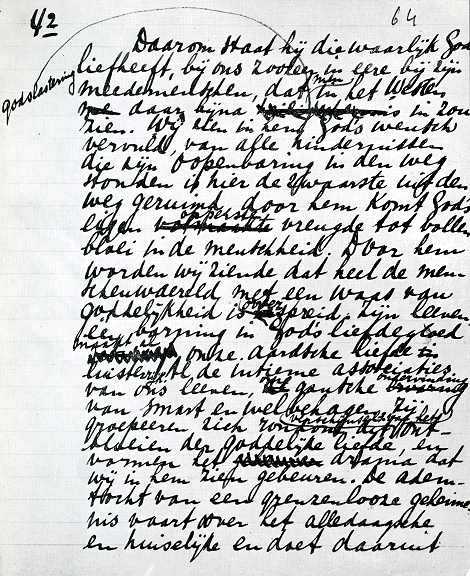 42
64
Daarom staat hij die waarlijk God
liefheeft, bij ons zoozeer in eere bij zijn
godslastering
medemenschen, dat men in het Westen
daar bijna in zou
zien. Wij zien in hem Gods wensch
vervuld, van alle hindernissen
die zijn Oopenbaring in den weg
stonden is hier de zwaarste uit den
weg geruimd, door hem komt Gods
eigen opperste vreugde tot vollen
bloei in de menschheid. Door hem
worden wij ziende dat heel de men-
schenwaereld met een waas van
goddelijkheid is overspreid. Zijn leeven,
één borning in Gods liefdegloed
maakt al onze aardsche liefde
luisterrijk. Al de intieme associaties
van ons leeven, gansche ondervinding
van smart en welbehagen zij
groepeeren zich
bloeien der goddelijke liefde, en
vormen het drama dat
wij in hem zien gebeuren. De adem-
tocht van een grenzenlooze geheime-
nis vaart over het alledaagsche
en huiselijke en doet daaruit